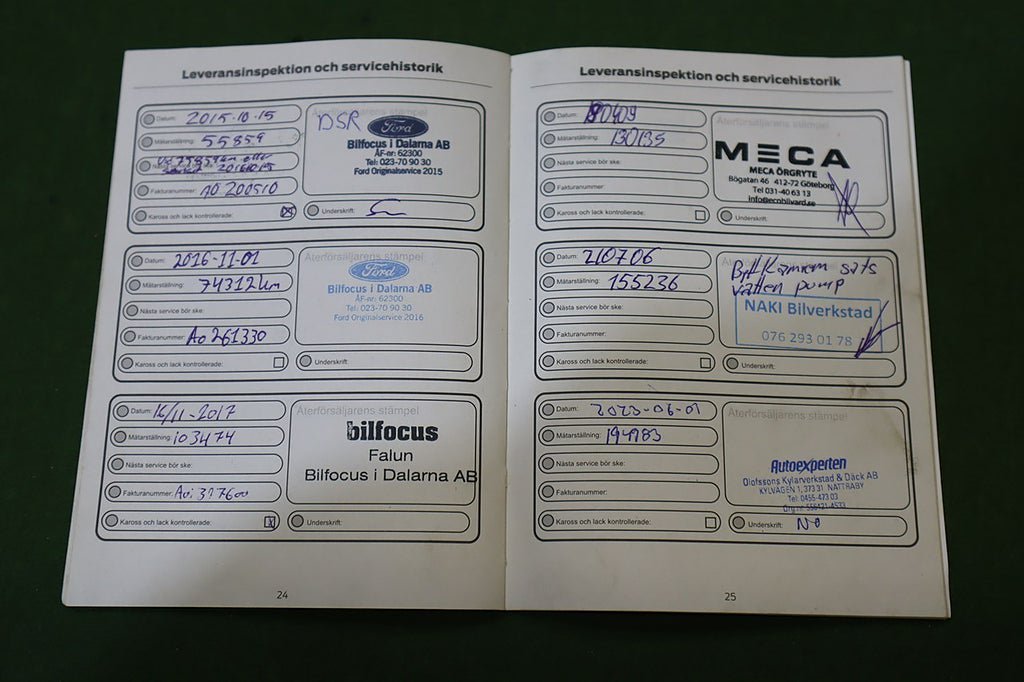 Leveransinspektion och servicehistorik
Datum: 2015-10-15
Mätarställning: 55859
Fakturanummer: AO 200510
Kaross och lack kontrollerade:
Återförsäljarens stämpel
DSR
Ford
Bilfocus i Dalarna AB
ÅF-nr: 62300
Tel: 023-70 90 30
Ford Originalservice 2015
Underskrift:
Datum: 2016-11-01
Mätarställning: 74312km
Nästa service bör ske:
Fakturanummer: Ao 261330
Kaross och lack kontrollerade:
Återförsäljarens stämpel
Ford
Bilfocus i Dalarna AB
ÅF-nr: 62300
Tel: 023-70 90 30
Ford Originalservice 2016
Underskrift:
Datum: 16/11-2017
Mätarställning: 103474
Nästa service bör ske:
Fakturanummer:
Kaross och lack kontrollerade:
Återförsäljarens stämpel
bilfocus
Falun
Bilfocus i Dalarna AB
Underskrift:
24
Leveransinspektion och servicehistorik
Datum:
Mätarställning: 130135
Nästa service bör ske:
Fakturanummer:
Kaross och lack kontrollerade:
Återförsäljarens stämpel
MECA
MECA ÖRGRYTE
Bögatan 46 412-72 Göteborg
Tel 031-40 63 13
info@ecobilvard.se
Underskrift:
Datum: 210706
Mätarställning: 155236
Nästa service bör ske:
Fakturanummer:
Kaross och lack kontrollerade:
Återförsäljarens stämpel
Byt Kamrem sats
vatten pump
NAKI Bilverkstad
076 293 01 78
Underskrift:
Datum: 2023-06-01
Mätarställning: 194983
Nästa service bör ske:
Fakturanummer:
Kaross och lack kontrollerade:
Återförsäljarens stämpel
Autoexperten
Olofssons Kylarverkstad & Däck AB
KYLVÄGEN 1, 373 31 NÄTTRABY
Tel: 0455-473 03
Org.nr: 556421-4573
Underskrift: NO
25